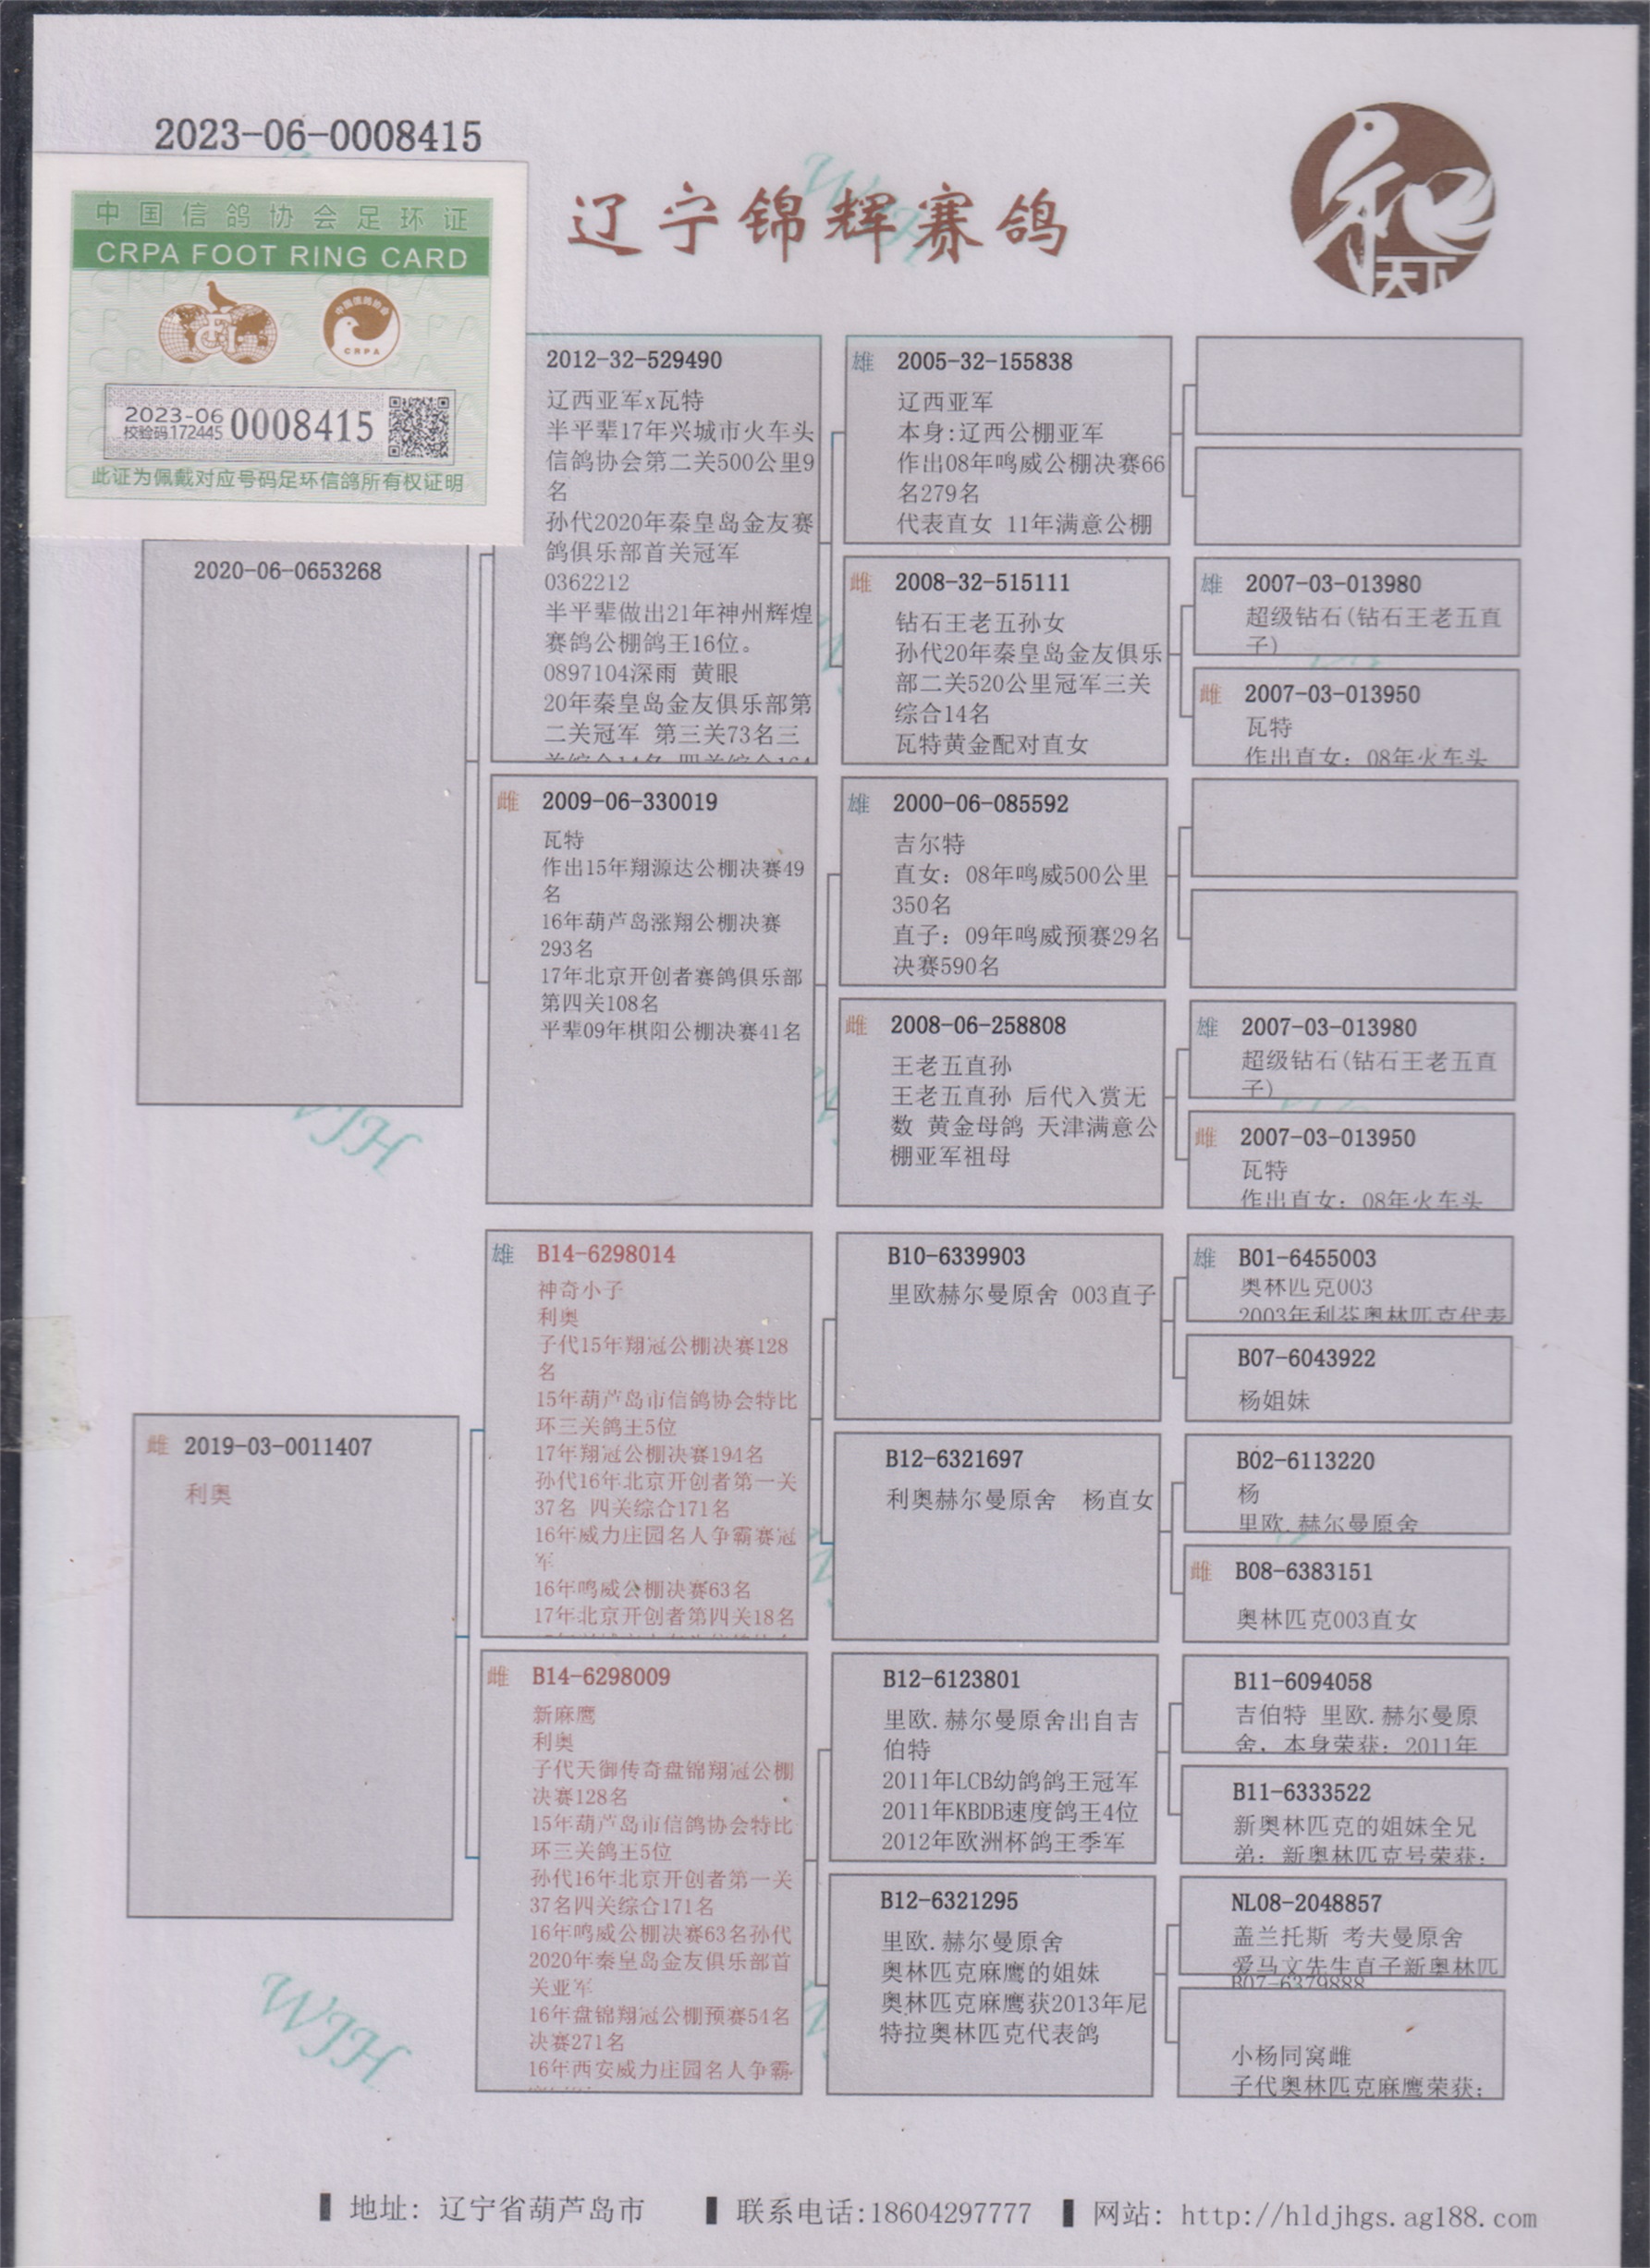 2023-06-0008415
中国信鸽协会足环证
CRPA FOOT RING CARD
中国信鸽协会
CRPA
2023-06
校验码172445
0008415
此证为佩戴对应号码足环信鸽所有权证明
辽宁锦辉赛鸽
和
天下
2020-06-0653268
2012-32-529490
辽西亚军x瓦特
半平辈17年兴城市火车头
信鸽协会第二关500公里9
名
孙代2020年秦皇岛金友赛
鸽俱乐部首关冠军
0362212
半平辈做出21年神州辉煌
赛鸽公棚鸽王16位。
0897104深雨 黄眼
20年秦皇岛金友俱乐部第
二关冠军 第三关73名三
关综合14名 四关综合164
雌 2009-06-330019
瓦特
作出15年翔源达公棚决赛49
名
16年葫芦岛涨翔公棚决赛
293名
17年北京开创者赛鸽俱乐部
第四关108名
平辈09年棋阳公棚决赛41名
雄 2005-32-155838
辽西亚军
本身:辽西公棚亚军
作出08年鸣威公棚决赛66
名279名
代表直女 11年满意公棚
雌 2008-32-515111
钻石王老五孙女
孙代20年秦皇岛金友俱乐
部二关520公里冠军三关
综合14名
瓦特黄金配对直女
雄 2000-06-085592
吉尔特
直女：08年鸣威500公里
350名
直子：09年鸣威预赛29名
决赛590名
雌 2008-06-258808
王老五直孙
王老五直孙 后代入赏无
数 黄金母鸽 天津满意公
棚亚军祖母
雄 2007-03-013980
超级钻石(钻石王老五直
子)
雌 2007-03-013950
瓦特
作出直女：08年火车头
雄 2007-03-013980
超级钻石(钻石王老五直
子)
雌 2007-03-013950
瓦特
作出直女：08年火车头
雌 2019-03-0011407
利奥
雄 B14-6298014
神奇小子
利奥
子代15年翔冠公棚决赛128
名
15年葫芦岛市信鸽协会特比
环三关鸽王5位
17年翔冠公棚决赛194名
孙代16年北京开创者第一关
37名 四关综合171名
16年威力庄园名人争霸赛冠
军
16年鸣威公棚决赛63名
17年北京开创者第四关18名
雌 B14-6298009
新麻鹰
利奥
子代天御传奇盘锦翔冠公棚
决赛128名
15年葫芦岛市信鸽协会特比
环三关鸽王5位
孙代16年北京开创者第一关
37名四关综合171名
16年鸣威公棚决赛63名孙代
2020年秦皇岛金友俱乐部首
关亚军
16年盘锦翔冠公棚预赛54名
决赛271名
16年西安威力庄园名人争霸
B10-6339903
里欧赫尔曼原舍 003直子
B12-6321697
利奥赫尔曼原舍 杨直女
B12-6123801
里欧.赫尔曼原舍出自吉
伯特
2011年LCB幼鸽鸽王冠军
2011年KBDB速度鸽王4位
2012年欧洲杯鸽王季军
B12-6321295
里欧.赫尔曼原舍
奥林匹克麻鹰的姐妹
奥林匹克麻鹰获2013年尼
特拉奥林匹克代表鸽
雄 B01-6455003
奥林匹克003
2003年利芬奥林匹克代表
B07-6043922
杨姐妹
B02-6113220
杨
里欧.赫尔曼原舍
雌 B08-6383151
奥林匹克003直女
B11-6094058
吉伯特 里欧.赫尔曼原
舍，本身荣获：2011年
B11-6333522
新奥林匹克的姐妹全兄
弟：新奥林匹克号荣获：
NL08-2048857
盖兰托斯 考夫曼原舍
爱马文先生直子新奥林匹
B07-6379888
小杨同窝雌
子代奥林匹克麻鹰荣获：
WJH
WJH
地址: 辽宁省葫芦岛市 联系电话:18604297777 网站: http://hldjhgs.ag188.com